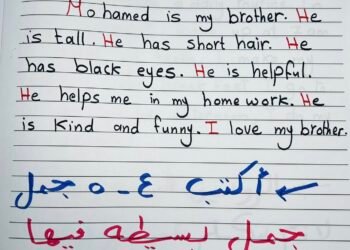 Mohamed is my brother. He
is tall. He has short hair. He
has black eyes. He is helpful.
He helps me in my home work. He
is Kind and funny. I love my brother.
أكتب ٤ - ٥ جمل
جمل بسيطه فيها